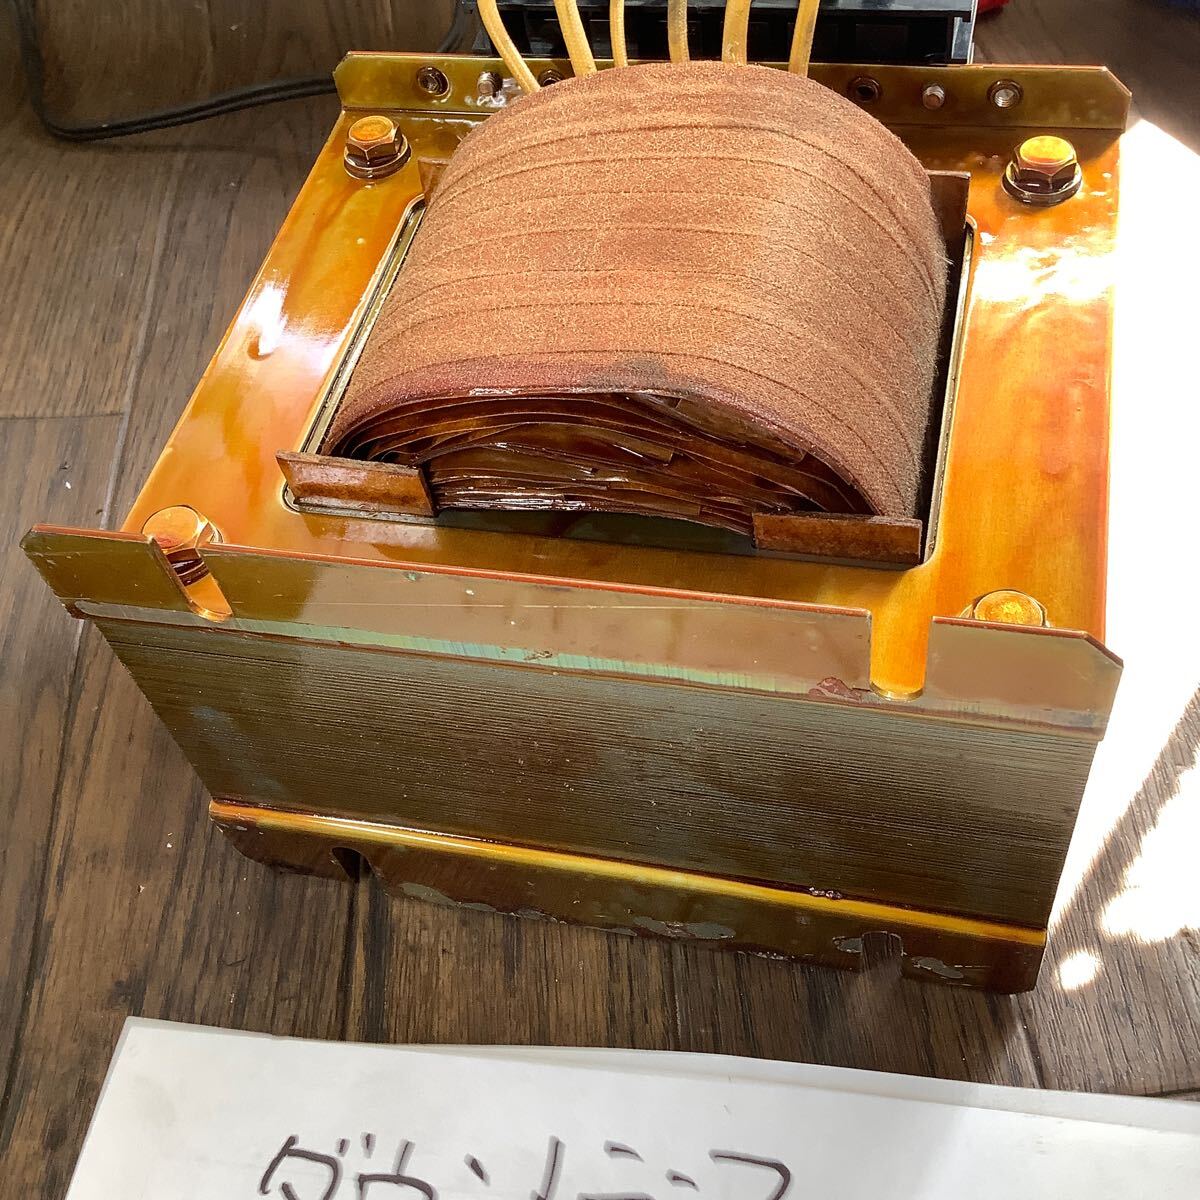 ダウントランス